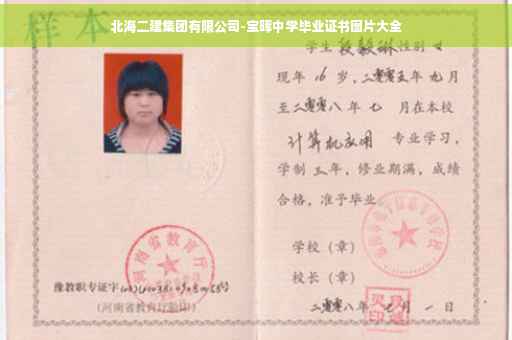 北海二建集团有限公司-宝晖中学毕业证书图片大全
样本
学生 段毅琳 性别 女
现年 16 岁，二零零五年 九月
至二零零八年 七 月在本校
计算机应用 专业学习，
学制 三 年，修业期满，成绩
合格，准予毕业
学校（章）
校长（章）
二零零八年 月 一 日
河南省教育厅
豫教职专证字
（河南省教育厅验印）